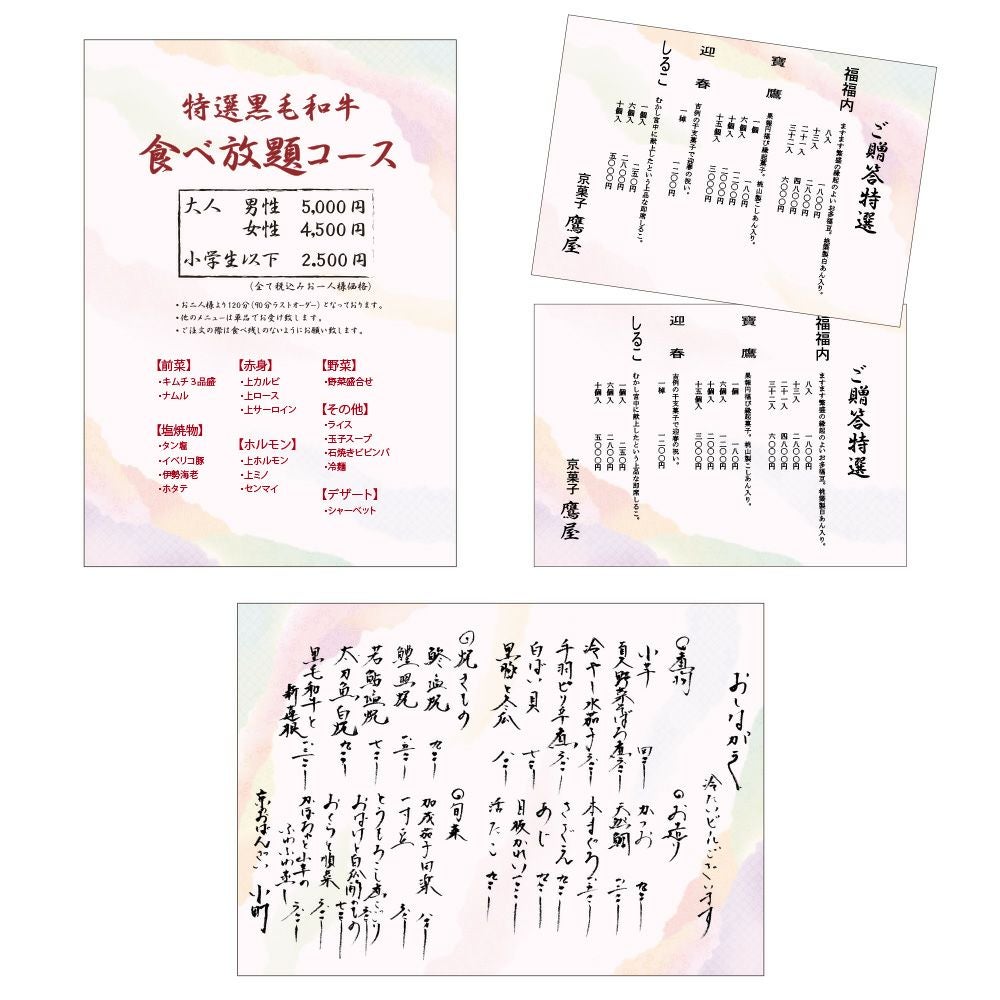 特選黒毛和牛
食べ放題コース
大人 男性 5,000円
女性 4,500円
小学生以下 2.500円
(全て税込みお一人様価格)
・お二人様より120分(90分ラストオーダー)となっております。
・他のメニューは単品でお受け致します。
・ご注文の際は食べ残しのないようにお願い致します。
【前菜】
・キムチ3品盛
・ナムル
【塩焼物】
・タン塩
・イベリコ豚
・伊勢海老
・ホタテ
【赤身】
・上カルビ
・上ロース
・上サーロイン
【ホルモン】
・上ホルモン
・上ミノ
・センマイ
【野菜】
・野菜盛合せ
【その他】
・ライス
・玉子スープ
・石焼きビビンバ
・冷麺
【デザート】
・シャーベット
ご贈答特選
福福内
ますます繁盛の縁起のよいお多福豆。桃葉製白あん入り。
八入 一八〇〇円
十三入 二八〇〇円
二十一入 四八〇〇円
三十二入 六〇〇〇円
寶鷹
果報円福び縁起菓子。桃山製こしあん入り。
一個 一八〇円
六個入 一二〇〇円
十個入 二〇〇〇円
十五個入 三〇〇〇円
迎春
吉例の干支菓子で迎春の祝い。
一棹 一二〇〇円
しるこ
むかし宮中に献上したという上品な即席しるこ。
一個入 二五〇円
六個入 二八〇〇円
十個入 五〇〇〇円
京菓子 鷹屋
ご贈答特選
福福内
ますます繁盛の縁起のよいお多福豆。桃葉製白あん入り。
八入 一八〇〇円
十三入 二八〇〇円
二十一入 四八〇〇円
三十二入 六〇〇〇円
寶鷹
果報円福び縁起菓子。桃山製こしあん入り。
一個 一八〇円
六個入 一二〇〇円
十個入 二〇〇〇円
十五個入 三〇〇〇円
迎春
吉例の干支菓子で迎春の祝い。
一棹 一二〇〇円
しるこ
むかし宮中に献上したという上品な即席しるこ。
一個入 二五〇円
六個入 二八〇〇円
十個入 五〇〇〇円
京菓子 鷹屋
おしながき
冷たいビールございます
煮物
小芋
夏野菜そぼろ煮
冷やし水茄子
手羽ピリ辛煮
白ばい貝
黒豚と冬瓜
お造り
かつお
天然鯛
本まぐろ
さざえ
あじ
目板かれい
活たこ
焼きもの
鱧塩焼
鰻黒焼
若鮎塩焼
太刀魚白焼
黒毛和牛と
新蓮根
旬菜
加茂茄子田楽
一寸豆
とうもろこし
おくらと順菜
かぼちゃと小芋の
ふわふわ蒸し
京おばんざい 小町